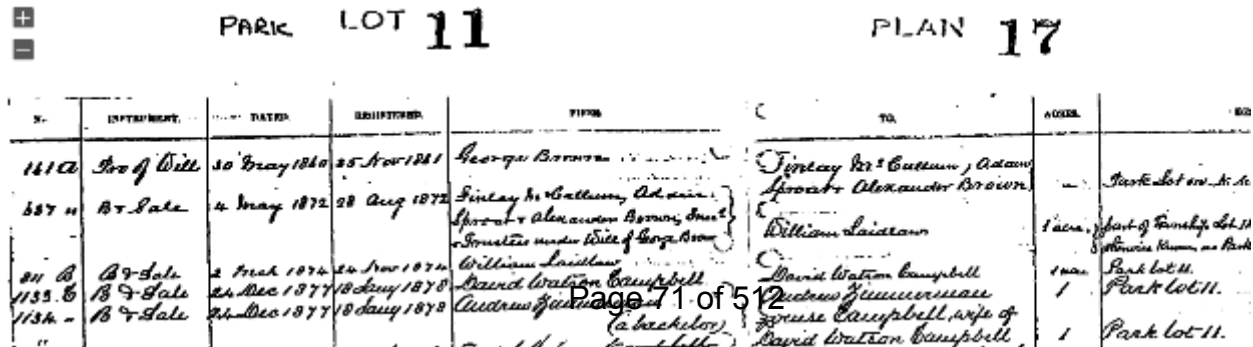 PARK LOT 11 PLAN 17
No. INSTRUMENT. DATED. REGISTERED. FROM. TO. ACRES.
161 A Pro of Will 30 May 1860 25 Nov 1861 George Brown Finlay McCallum, Adam
Sproat & Alexander Brown Park Lot
557 " B & Sale 4 May 1872 28 Aug 1872 Finlay McCallum, Adam
Sproat & Alexander Brown, William Laidlaw 1 acre part of Township Lot
Trustees under Will of George Brown known as Park
811 B B & Sale 2 Mch 1874 24 Nov 1874 William Laidlaw David Watson Campbell 1 Park lot 11.
1133 C B & Sale 24 Dec 1877 18 Jany 1878 David Watson Campbell Andrew Zimmerman 1 Park lot 11.
1134 " B & Sale 24 Dec 1877 18 Jany 1878 Andrew Zimmerman Louise Campbell, wife of
(a bachelor) David Watson Campbell 1 Park lot 11.
Page 71 of 512